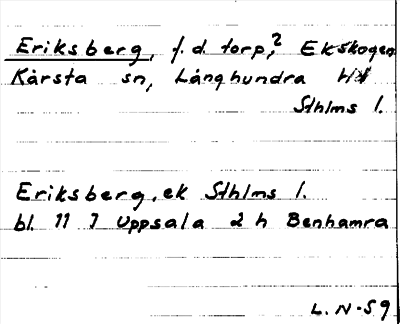 Eriksberg, f.d. torp,? Ekskogen
Kårsta sn, Långhundra
Sthlms l.
Eriksberg, ek Sthlms l.
bl. 11 I Uppsala 2 h Benhamra
L.N-59